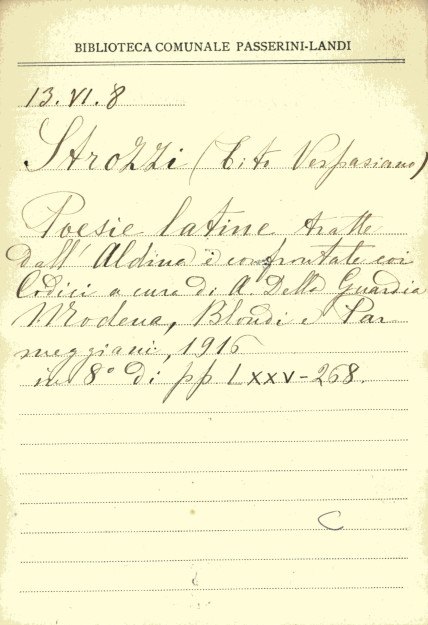 BIBLIOTECA COMUNALE PASSERINI-LANDI
13. VI. 8
Strozzi (Tito Vespasiano)
Poesie latine tratte
dall' Aldina e confrontate coi
Codici a cura di A Della Guardia
Modena, Blondi e Par
meggiani, 1916
in 8° di pp LXXV-268.
C